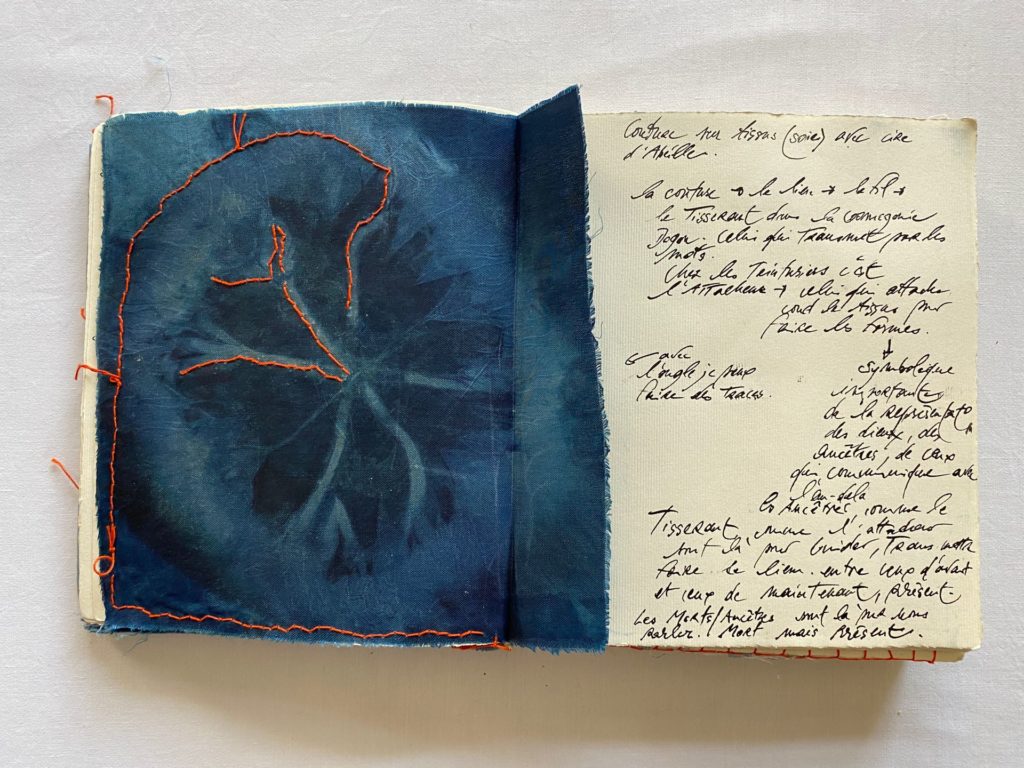 Couture sur tissus (soie) avec cire
d'Abeille.
la couture → le lien → le fil →
le Tisserant dans la Cosmogonie
Dogon. Celui qui Transmet par les
mots.
Chez les Teinturiers c'est
l'Attacheur → celui qui attache
coud le tissus pour
faire les formes.
↓
symbolique
importante
de la représentat°
des dieux, des
Ancêtres, de ceux
qui communique avec
l'au-delà
avec
l'ongle je peux
faire des traces.
les Ancêtres, comme le
Tisserant, comme l'attacheur
sont là pour Guider, Transmettre
faire le lien entre ceux d'avant
et ceux de maintenant, présent.
Les Morts/Ancêtres sont là pour nous
parler. Mort mais Présent.